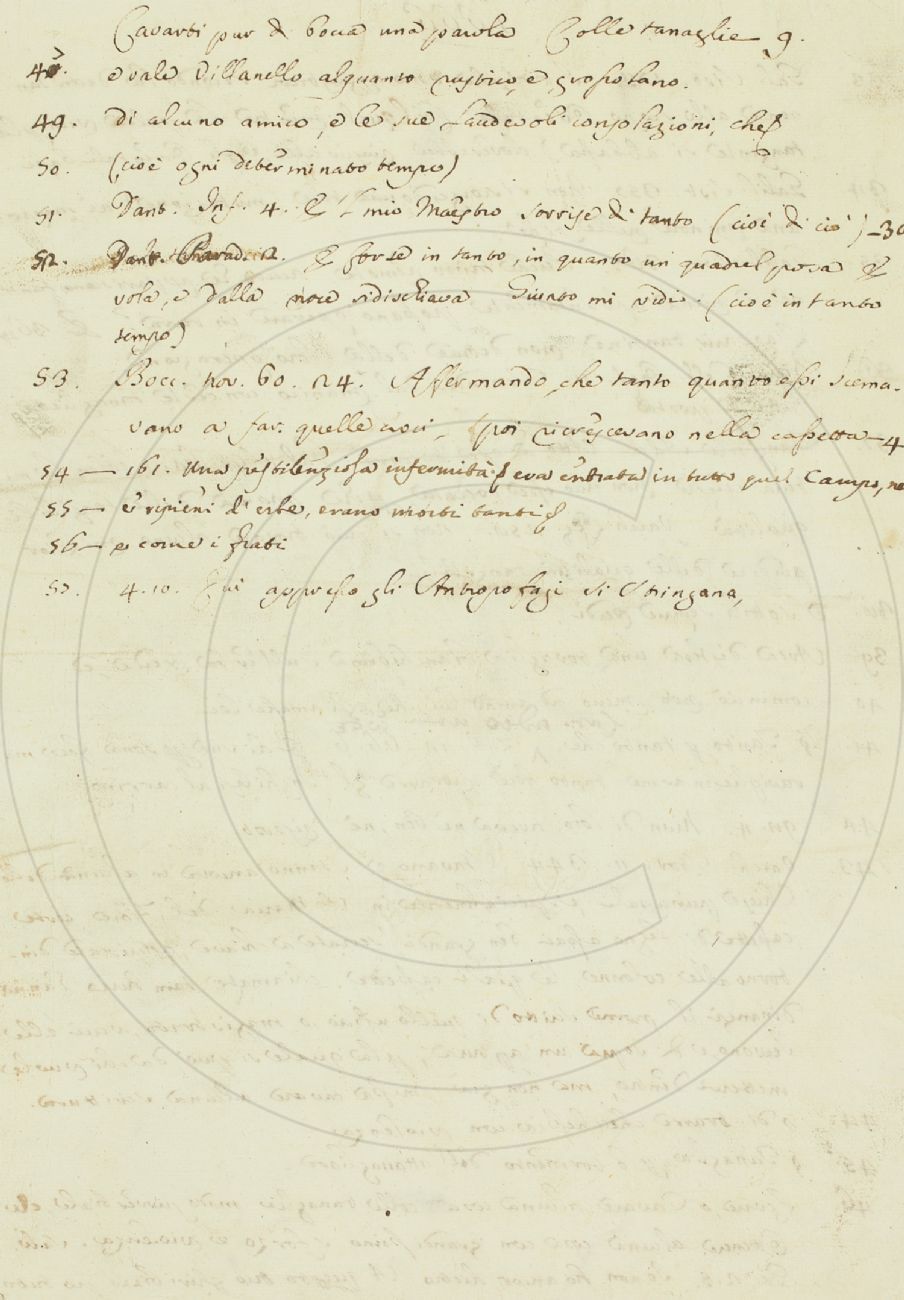 Cavarti pur di bocca una parola Colle tanaglie 9.
47. e vale Villanello alquanto rustico, e grossolano.
49. di alcuno amico, e le sue laudevoli consolazioni, che
50. (cioè ogni determinato tempo)
51. Dant. Inf. 4. E 'l mio Maestro sorrise di tanto (cioè di ciò)
52. Dant. Parad. 2. E forse in tanto, in quanto un quadrel posa E
vola, e dalla noce si dischiava Giunto mi vidi. (cioè in tanto
tempo)
53. Bocc. nov. 60. 24. Affermando, che tanto quanto essi scema-
vano a far quelle croci, poi ricrescevano nella cassetta — 4
54 — 161. una pestilenziosa infermità era entrata in tutto quel Campo, ne
55 — e ripieni d'erbe, erano morti tanti
56 — e come i frati
57. 4. 10. Qui appresso gli Antropofagi si